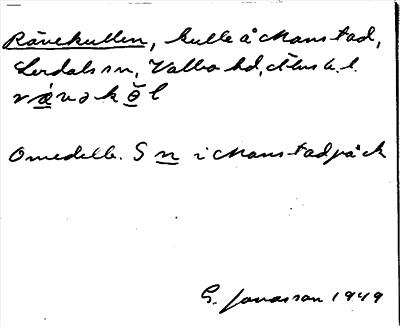 Rävekullen, kulle å Manstad,
Lerdals sn, Valbo hd, Älvsb. l.
rǽvəkö̀l
Omedelb. S n i Manstadpåck
G. Jonasson 1949